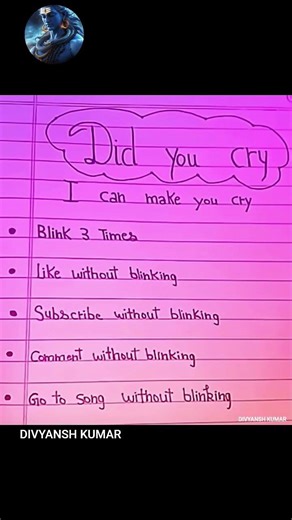 Did you cry
I can make you cry
• Blink 3 Times
• Like without blinking
• Subscribe without blinking
• Comment without blinking
• Go to song without blinking
DIVYANSH KUMAR
DIVYANSH KUMAR